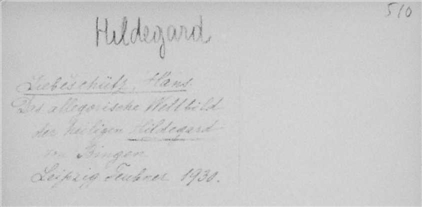 510
Hildegard
Liebeschütz, Hans
Das allegorische Weltbild
der heiligen Hildegard
von Bingen
Leipzig Teubner 1930.